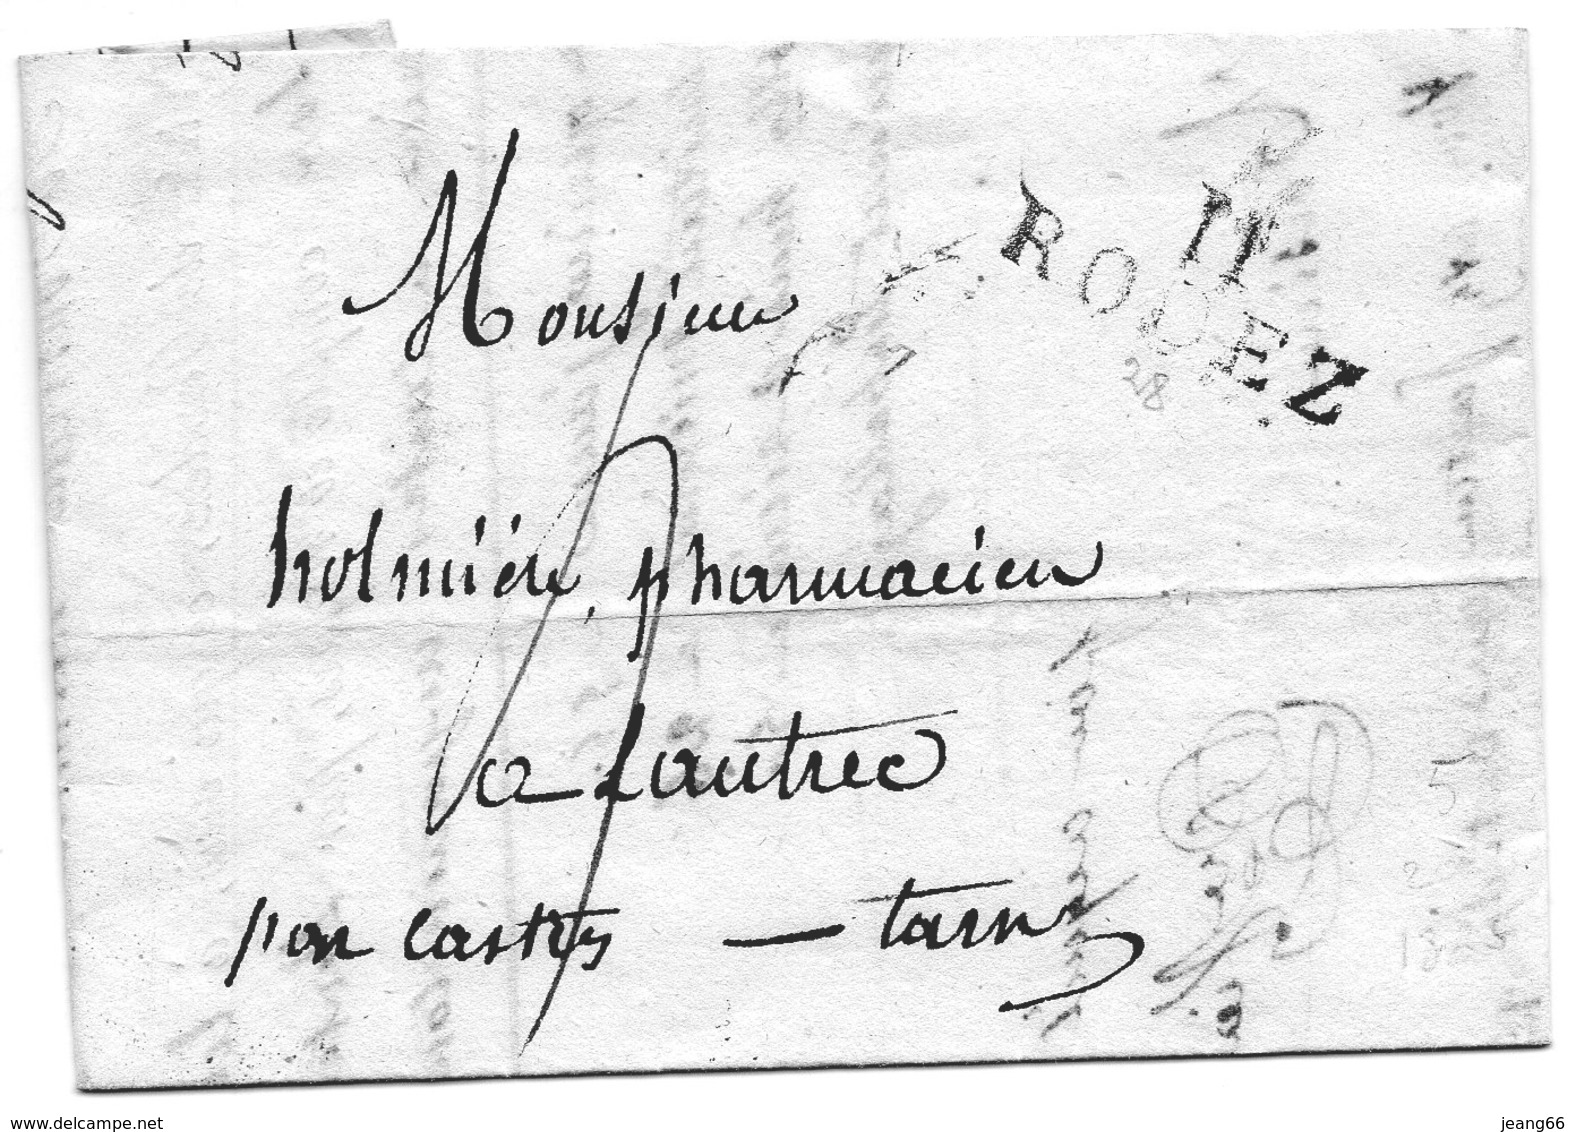 11
RODEZ
28
Monsieur
holmière, pharmacien
a Lautrec
par Castres — tarn
5
www.delcampe.net
jeang66